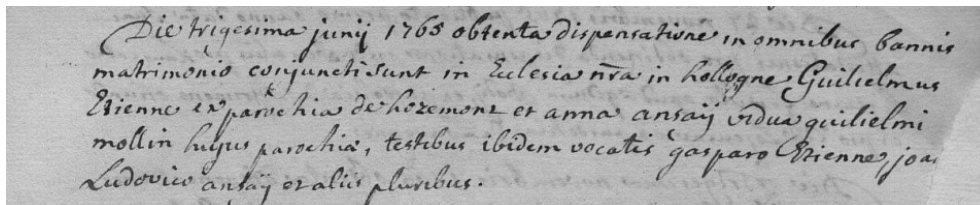 Die trigesima junij 1765 obtenta dispensatione in omnibus bannis
matrimonio conjuncti sunt in Eclesia nr̃a in hollogne Guilielmus
Etienne ex parochia de hozemont et anna ansaÿ vidua guilielmi
mollin hujus parochiæ, testibus ibidem vocatis gasparo Etienne, joan
Ludovico ansaÿ et aliis pluribus.